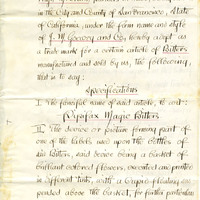 in the City and County of San Francisco, State
of California, under the firm name and style
of J. M. Goewey and Co., hereby adopt as
a trade mark for a certain article of Bitters
manufactured and sold by us, the following,
that is to say:
Specifications
I The fanciful name of said article, to wit:
Pipifax Magic Bitters
II The device or picture forming part of
one of the labels used upon the bottles of
said Bitters, said device being a basket of
brilliant colored flowers, executed and printed
in different tints, with a Cupid floating sus-
pended above the basket, for further particulars